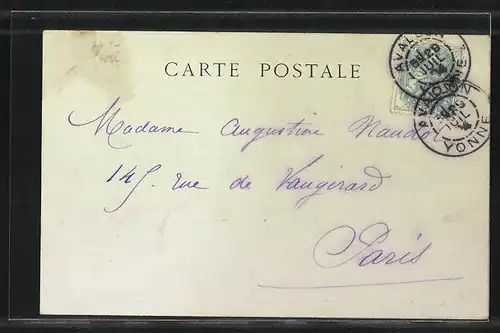 CARTE POSTALE
AVALLON
JUIL
YONNE
AVALLON
JUIL
YONNE
Madame Augustine Naudo
145. rue de Vaugirard
Paris